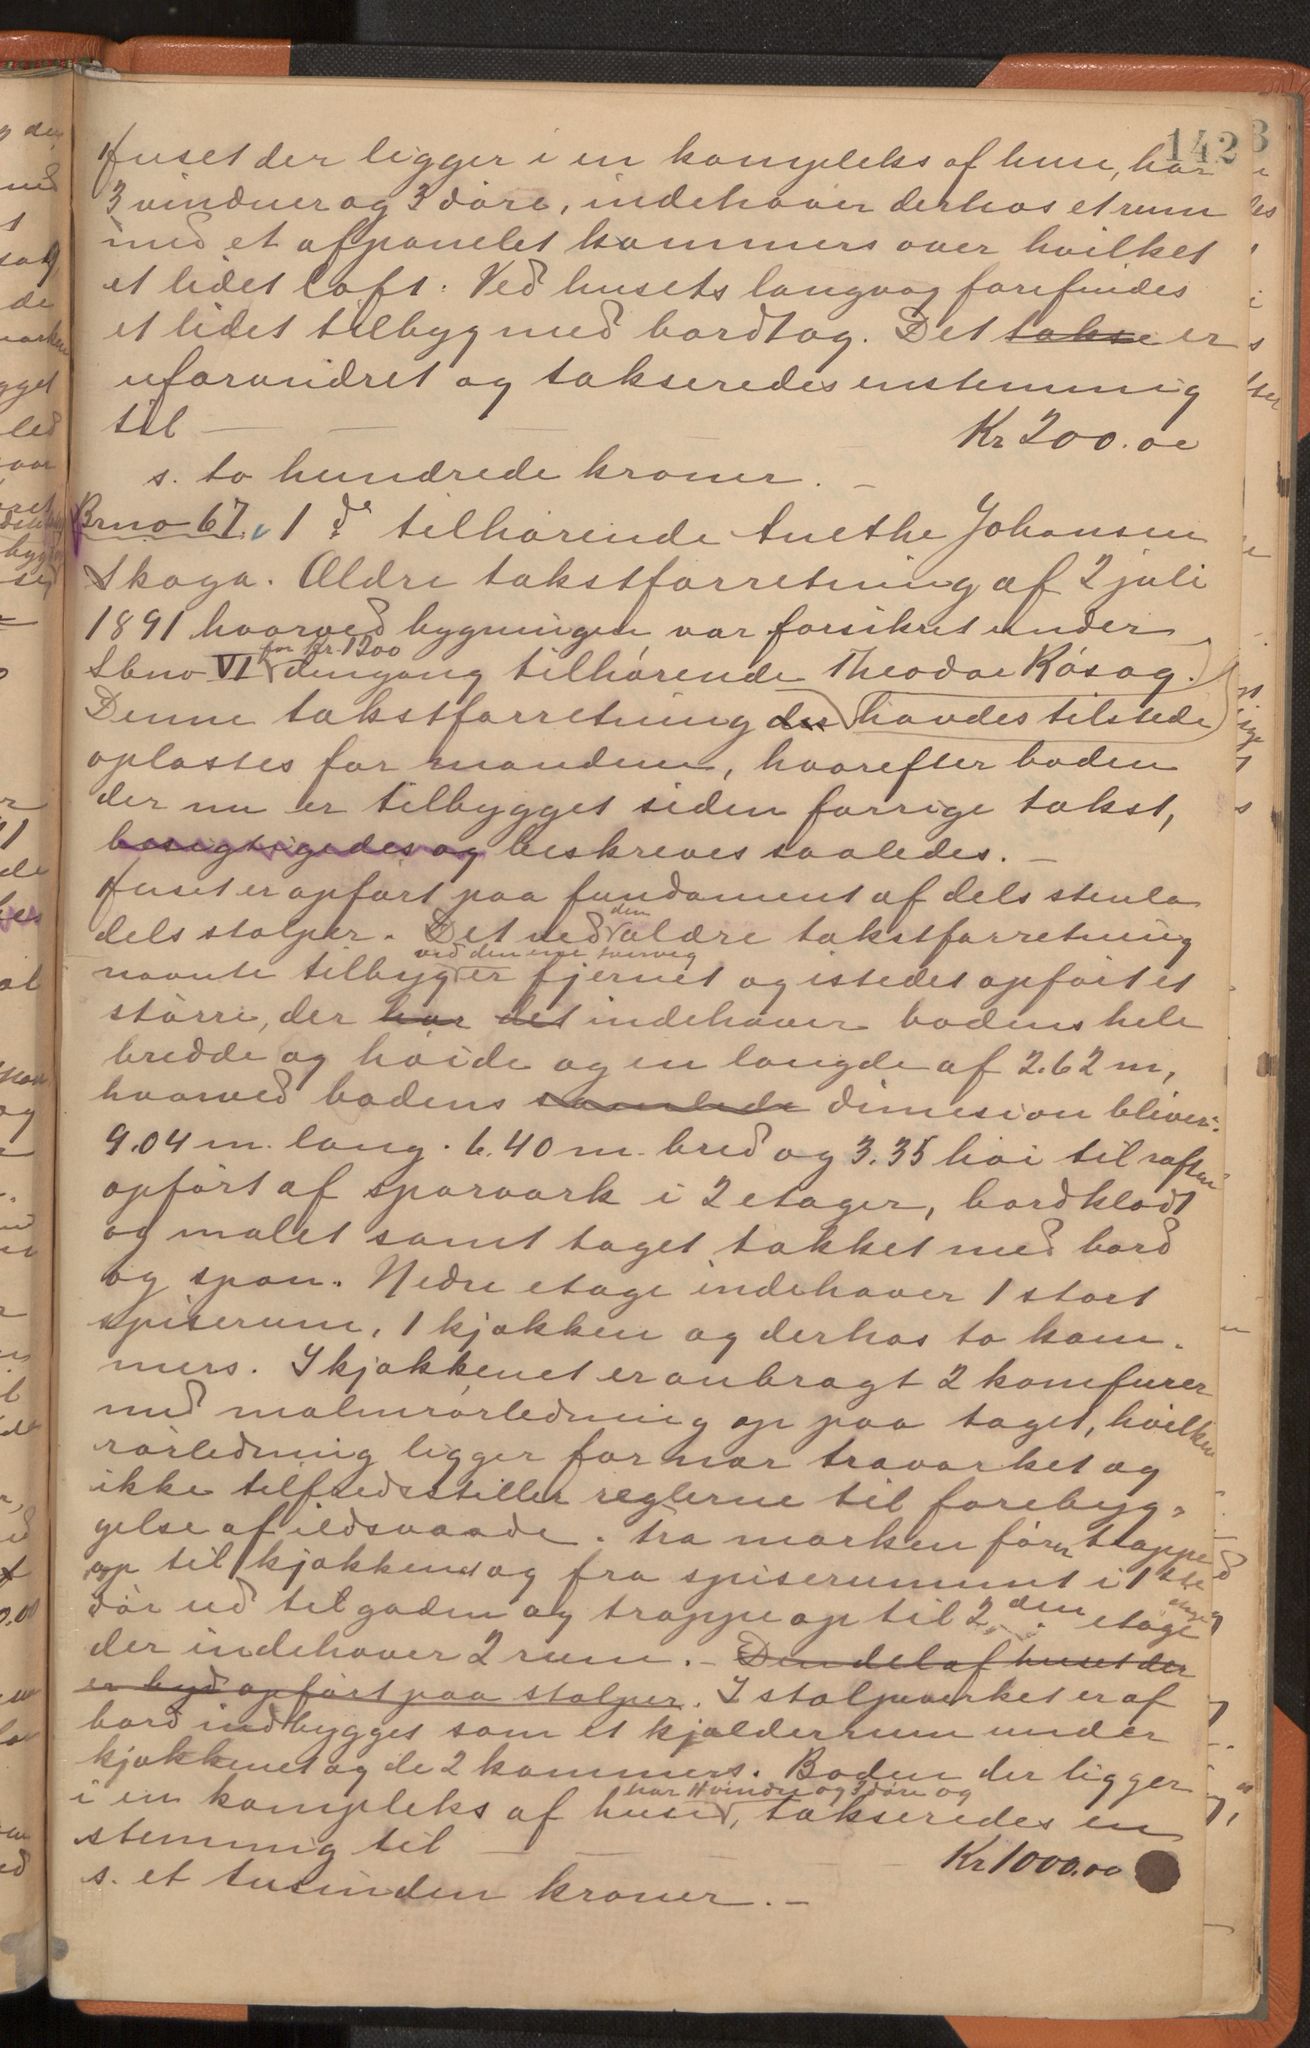 142
Huset der ligger i en kompleks af huse, har
3 vinduer og 3 døre, indehaver derhos et rum
med et afpanelet kammers over hvilket
et lidet loft. Ved husets langvæg forefindes
et lidet tilbyg med bordtag. Det takse er
uforandret og takseredes enstemmig
til — — — — Kr 200.00
s. to hundrede kroner. —
Brno 67, 1 do tilhørende Anethe Johansen
Skaga. Ældre takstforretning af 2 juli
1891 hvorved bygningen var forsikret under
for Kr. 1200
Sbno VI dengang tilhørende Theodor Røsøg.
Denne takstforretning der havdes tilstede
oplæstes for mændene, hvorefter boden
der nu er tilbygget siden forrige takst,
besigtigedes og beskreves saaledes. —
Huset er opført paa fundament af dels stenla
dels stolper. Det ved den ældre takstforretning
ved den ene tværvæg
nævnte tilbyg er fjernet og istedet opført et
større, der har det indehaver bodens hele
bredde og høide og en længde af 2.62 m,
hvorved bodens samlede dimesion bliver:
9.04 m. lang. 6.40 m. bred og 3.35 høi til raftet
opført af sparværk i 2 etager, bordklædt
og malet samt taget tækket med bord
og spon. Nedre etage indehaver 1 stort
spiserum, 1 kjøkken og derhos to kam-
mers. I kjøkkenet er anbragt 2 komfurer
med malmrørledning op paa taget, hvilken
rørledning ligger for nær træværket og
ikke tilfredsstiller reglerne til forebyg-
gelse af ildsvaade. Fra marken fører trappe
op til kjøkkenet og fra spiserummet i 1ste
etage
dør ud til gaden og trappe op til 2den etage
der indehaver 2 rum. — Den del af huset der
er byd opført paa stolper. I stolpeverket er af
bord indbygget som et kjælderrum under
kjøkkenet og de 2 kammers. Boden der ligger
har 11 vinduer og 3 døre og
i en kompleks af huse, takseredes en
stemmig til — — — — Kr 1000.00
s. et tusinden kroner. —